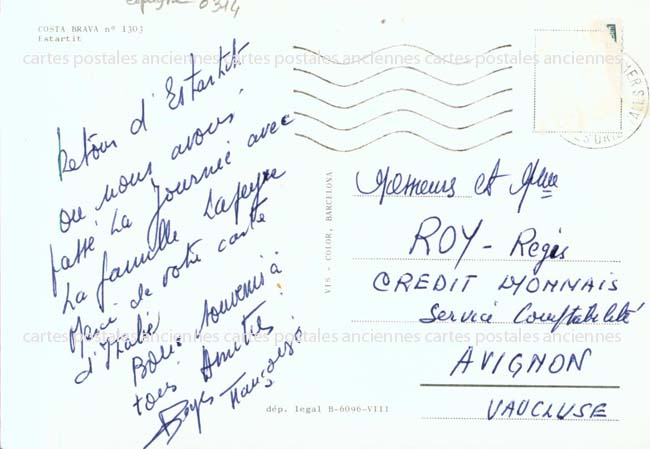 espagne 0314
COSTA BRAVA nº 1303
Estartit
cartes postales anciennes cartes postales anciennes cartes postales anciennes
Retour d'Estartit
ou nous avous
passé la journée avec
La famille Lapeyre
Merci de votre carte
d'Italie
Bons souvenirs à
tous Amitiés
Françoise
VIS - COLOR, BARCELONA
Monsieur et Mme
ROY - Regis
CREDIT LYONNAIS
Service Comptabilité
cartes postales anciennes cartes postales anciennes cartes postales anciennes
AVIGNON
VAUCLUSE
dép. legal B-6096-VIII